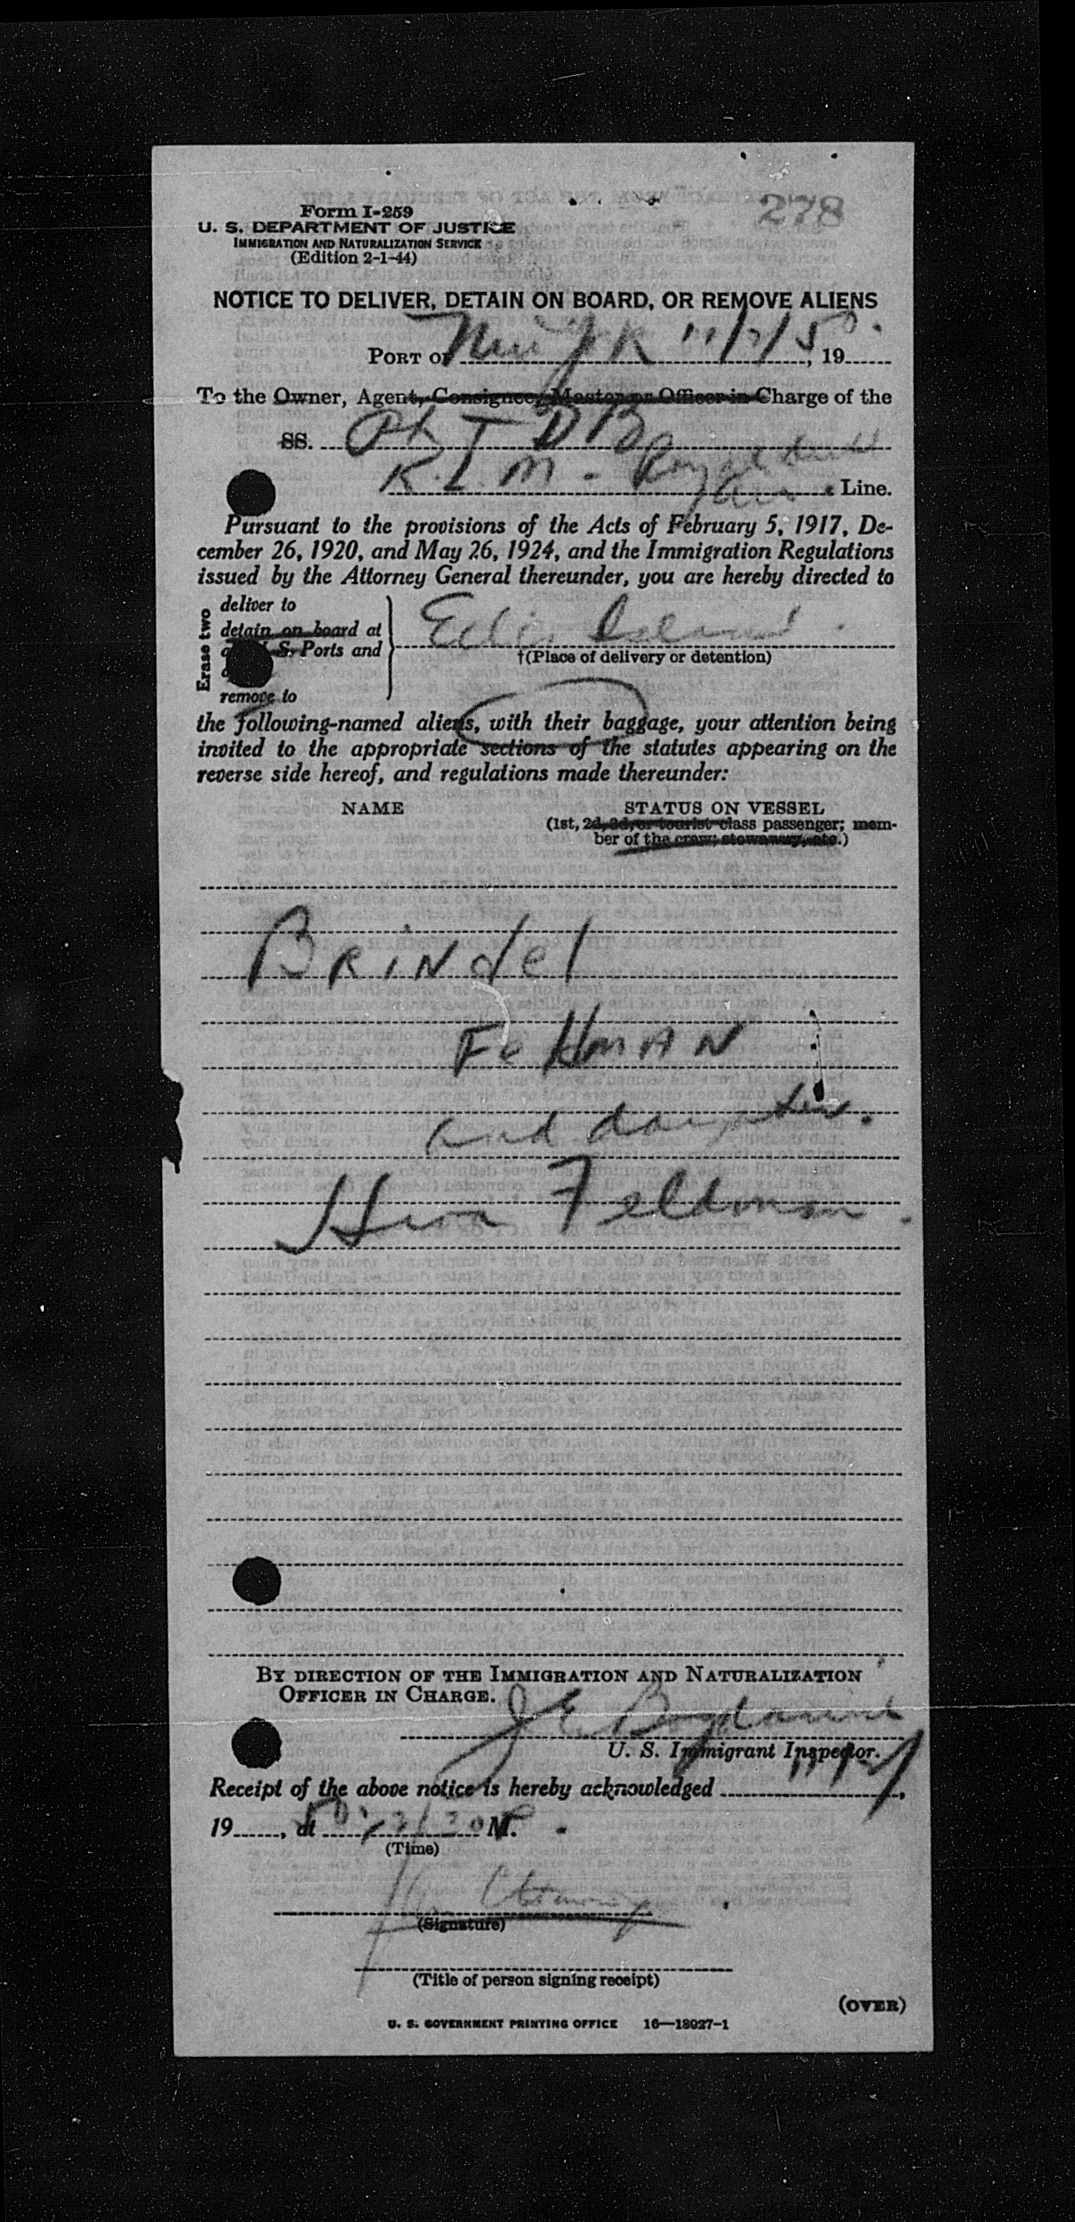 278
Form I-259
U. S. DEPARTMENT OF JUSTICE
IMMIGRATION AND NATURALIZATION SERVICE
(Edition 2-1-44)
NOTICE TO DELIVER, DETAIN ON BOARD, OR REMOVE ALIENS
PORT OF New York 11/7/50, 19
To the Owner, Agent, Consignee, Master or Officer in Charge of the
SS. PH T D B
K.L.M. - Royal dutch
Air Line.
Pursuant to the provisions of the Acts of February 5, 1917, De-
cember 26, 1920, and May 26, 1924, and the Immigration Regulations
issued by the Attorney General thereunder, you are hereby directed to
Erase two
deliver to
detain on board at
U. S. Ports and
remove to
Ellis Island
†(Place of delivery or detention)
the following-named aliens, with their baggage, your attention being
invited to the appropriate sections of the statutes appearing on the
reverse side hereof, and regulations made thereunder:
NAME STATUS ON VESSEL
(1st, 2d, 3d, or tourist class passenger; mem-
ber of the crew; stowaway, etc.)
BRINdel
FeldMAN
and daughter.
Feldman
BY DIRECTION OF THE IMMIGRATION AND NATURALIZATION
OFFICER IN CHARGE.
J E
U. S. Immigrant Inspector.
Receipt of the above notice is hereby acknowledged 11/7/,
19 50, at M.
(Time)
(Signature)
(Title of person signing receipt)
(OVER)
U. S. GOVERNMENT PRINTING OFFICE 16—18027-1